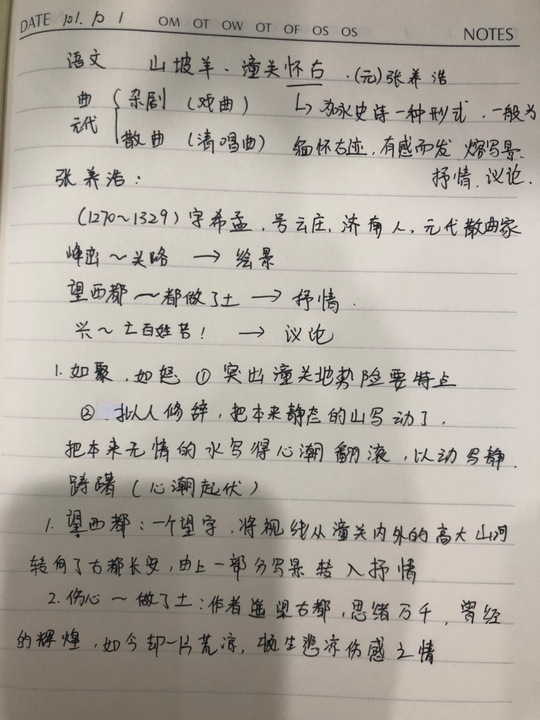 DATE 101. 10 1 OM OT OW OT OF OS OS NOTES
语文 山坡羊·潼关怀古 ·(元)张养浩
曲 { 杂剧 (戏曲) ↳ 咏史诗一种形式.一般为
元代
散曲 (清唱曲) 缅怀古迹,有感而发 熔写景.
抒情.议论.
张养浩:
(1270~1329)字希孟.号云庄.济南人.元代散曲家
峰峦~关路 → 绘景
望西都~都做了土 → 抒情.
兴~亡百姓苦! → 议论
1.如聚.如怒 ① 突出潼关地势险要特点
② 拟人修辞,把本来静态的山写动了.
把本来无情的水写得心潮翻 ,以动写静.
踌躇(心潮起伏)
1. 望西都:一个望字.将视线从潼关内外的高大山河
转向了古都长安,由上一部分写景转入抒情
2.伤心~做了土:作者遥望古都,思绪万千,曾经
的辉煌.如今却一片荒凉,顿生悲凉伤感之情